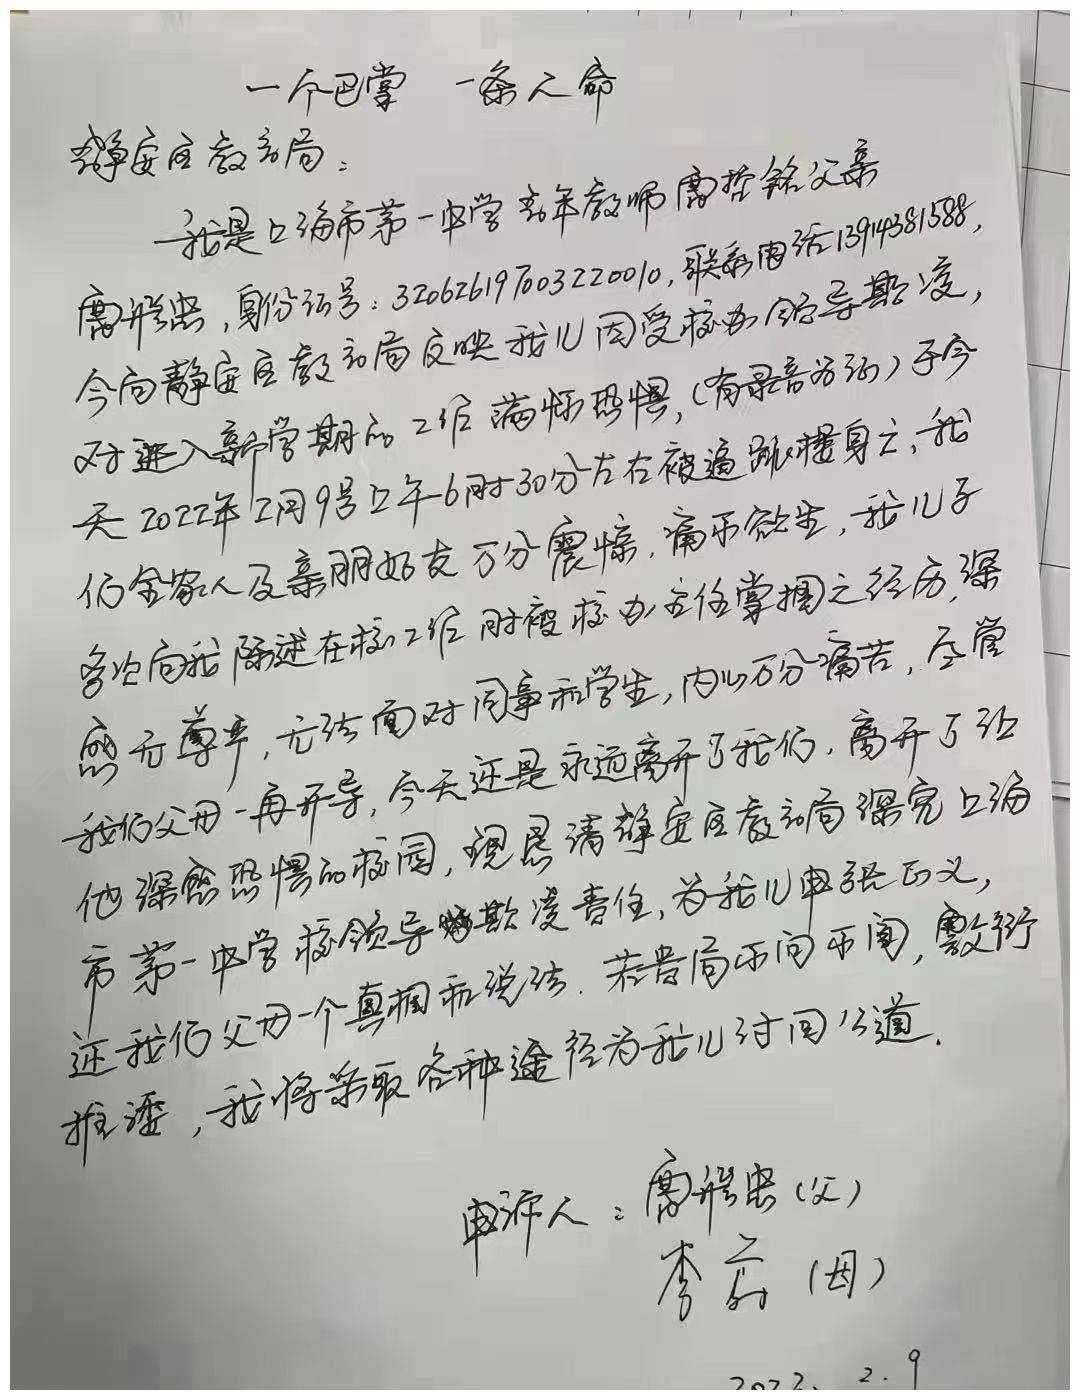 一个巴掌 一条人命
静安区教育局：
我是上海市第一中学青年教师席哲铭父亲
席彤忠，身份证号：320626197003220010，联系电话13914381588，
今向静安区教育局反映我儿因受校办领导欺凌，
对进入新学期的工作满怀恐惧，（有录音为证）于今
天2022年2月9号上午6时30分左右被逼跳楼身亡，我
们全家人及亲朋好友万分震惊，痛不欲生，我儿子
多次向我陈述在校工作时被校办主任掌掴之经历，深
感无尊严，无法面对同事和学生，内心万分痛苦，尽管
我们父母一再开导，今天还是永远离开了我们，离开了让
他深感恐惧的校园，现恳请静安区教育局深究上海
市第一中学校领导欺凌责任，为我儿申张正义，
还我们父母一个真相和说法．若贵局不问不闻，敷衍
推诿，我将采取各种途径为我儿讨回公道．
申诉人：席彤忠（父）
李（母）
2022．2．9